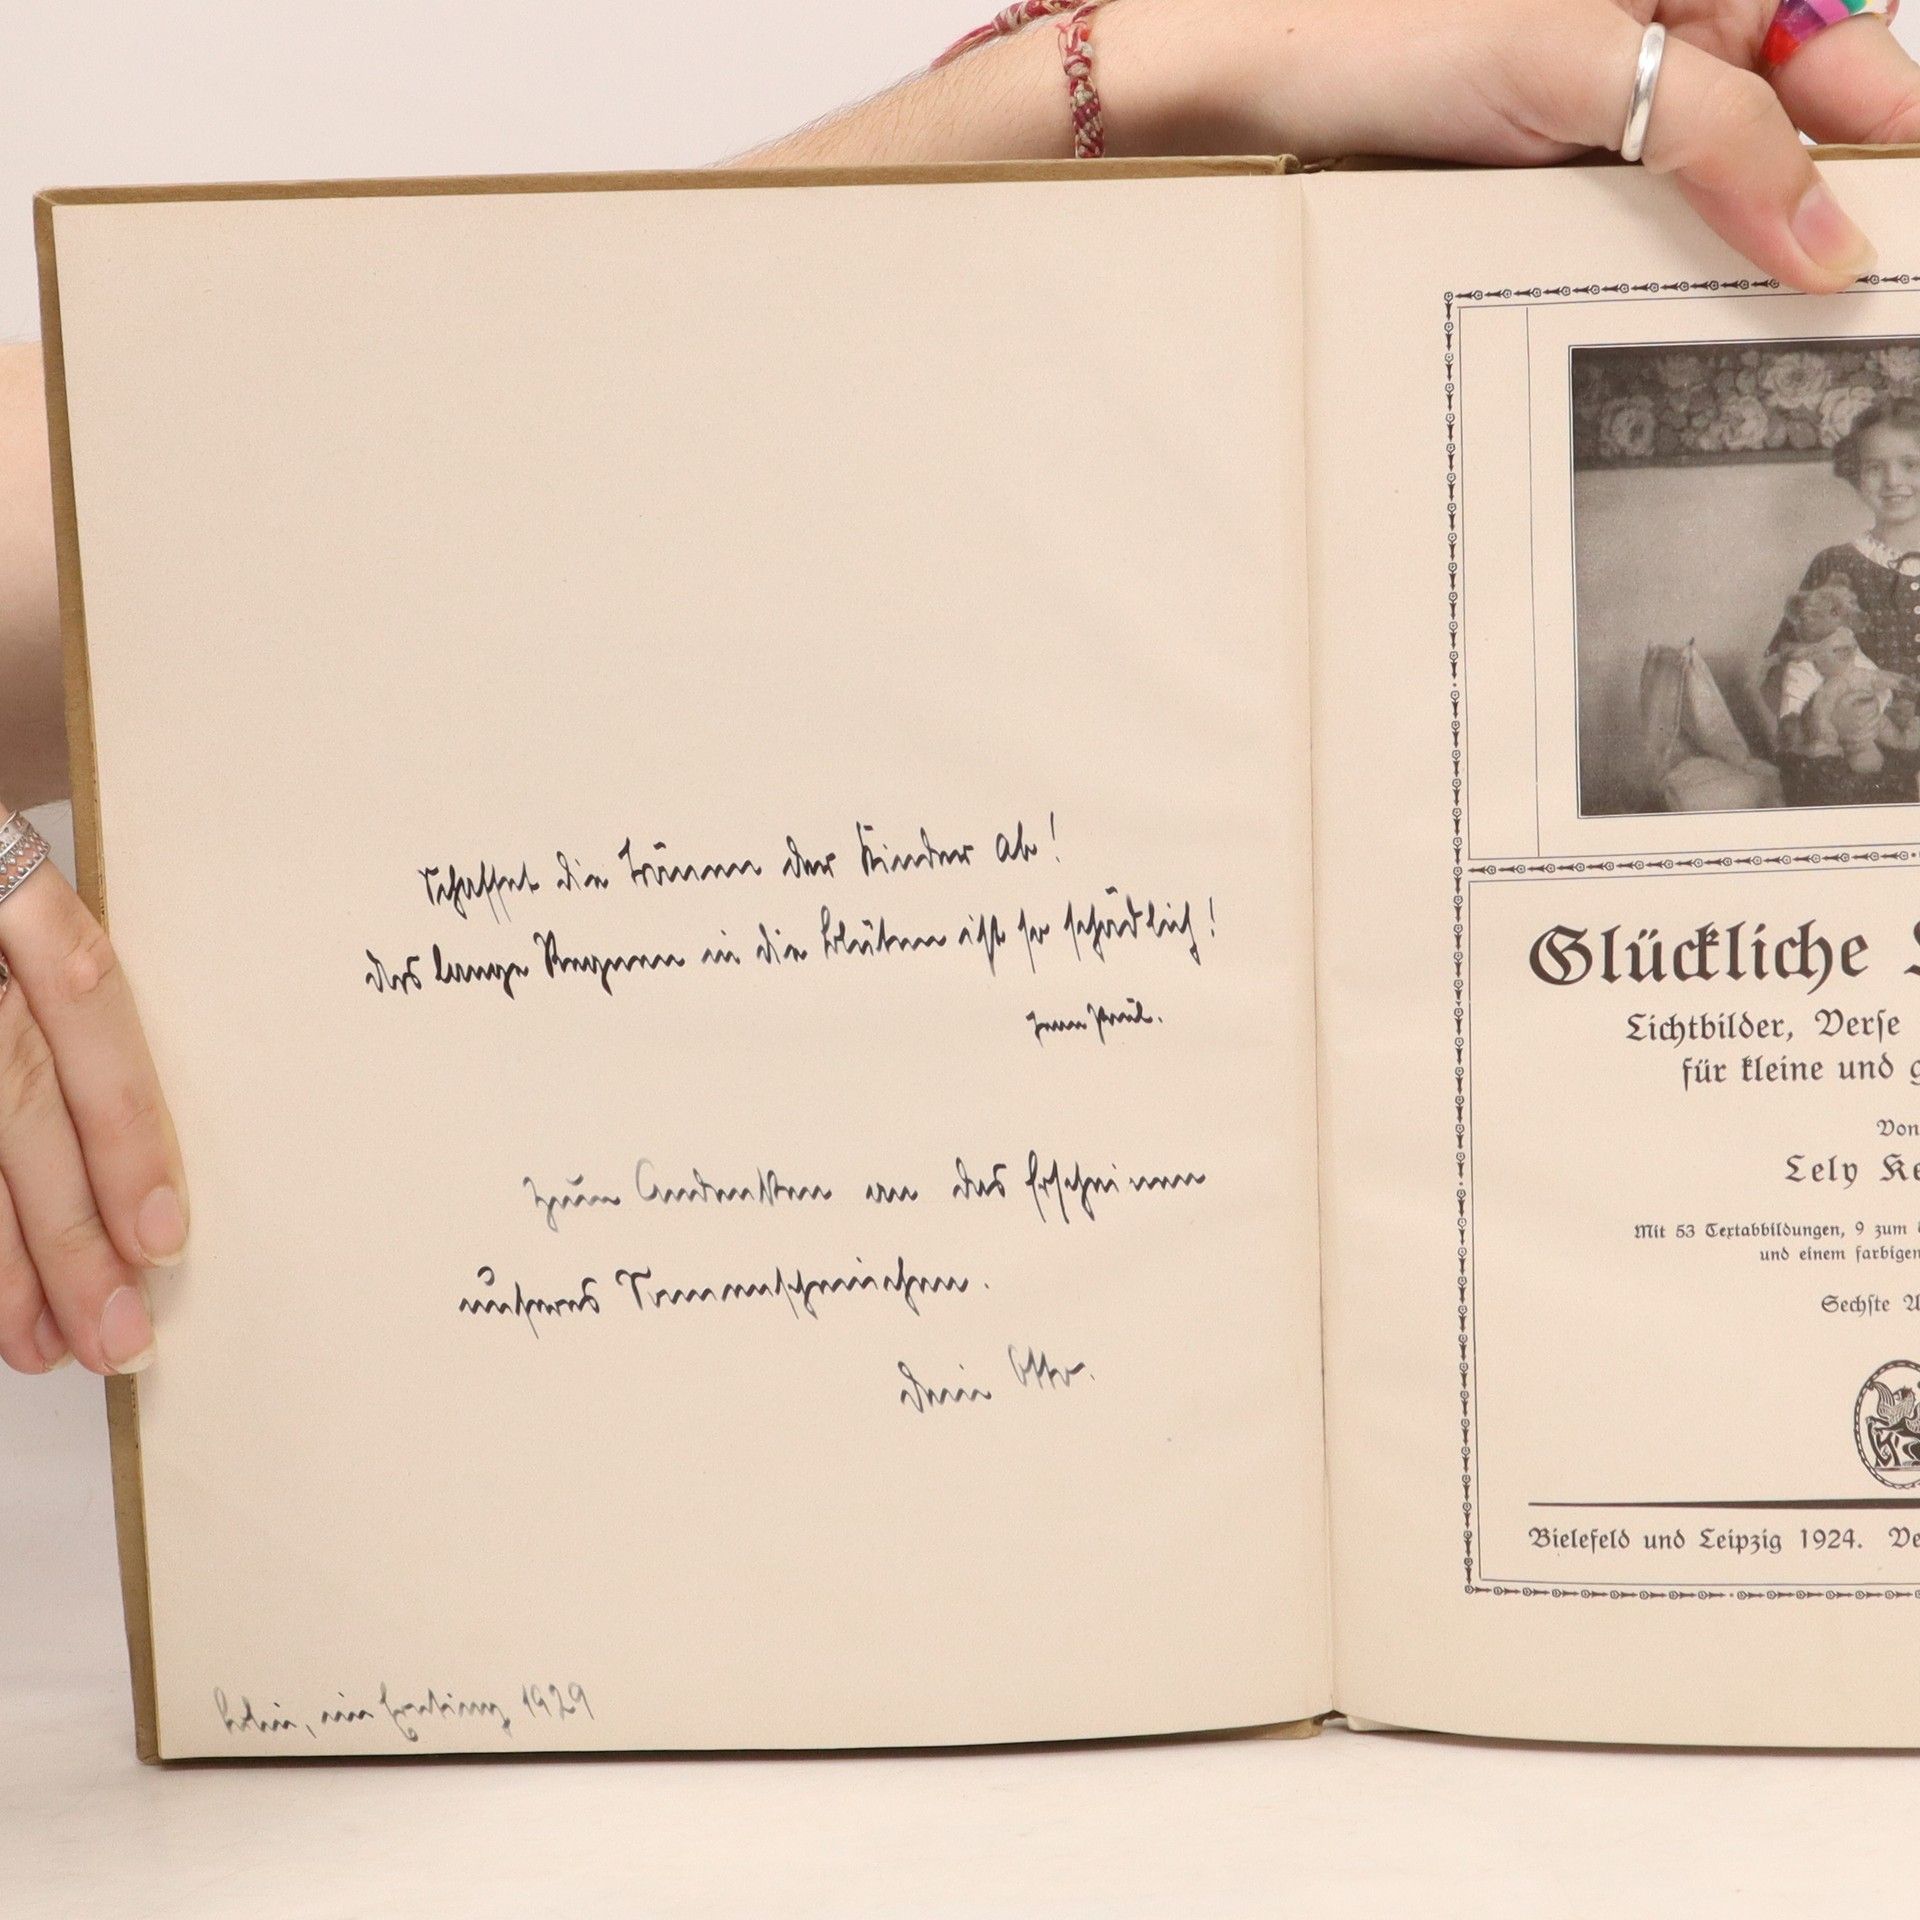 Schaffet die Tränen der Kinder ab!
das lange Regnen in die Blüten ist so schädlich!
Jean Paul.
Zum Andenken an das Erscheinen
unseres Sonnenscheinchen.
Dein Otto.
im 1929
Glückliche
Lichtbilder, Verse
für kleine und
Von
Lely
Mit 53 Textabbildungen, 9 zum
und einem farbigen
Sechste
Bielefeld und Leipzig 1924.